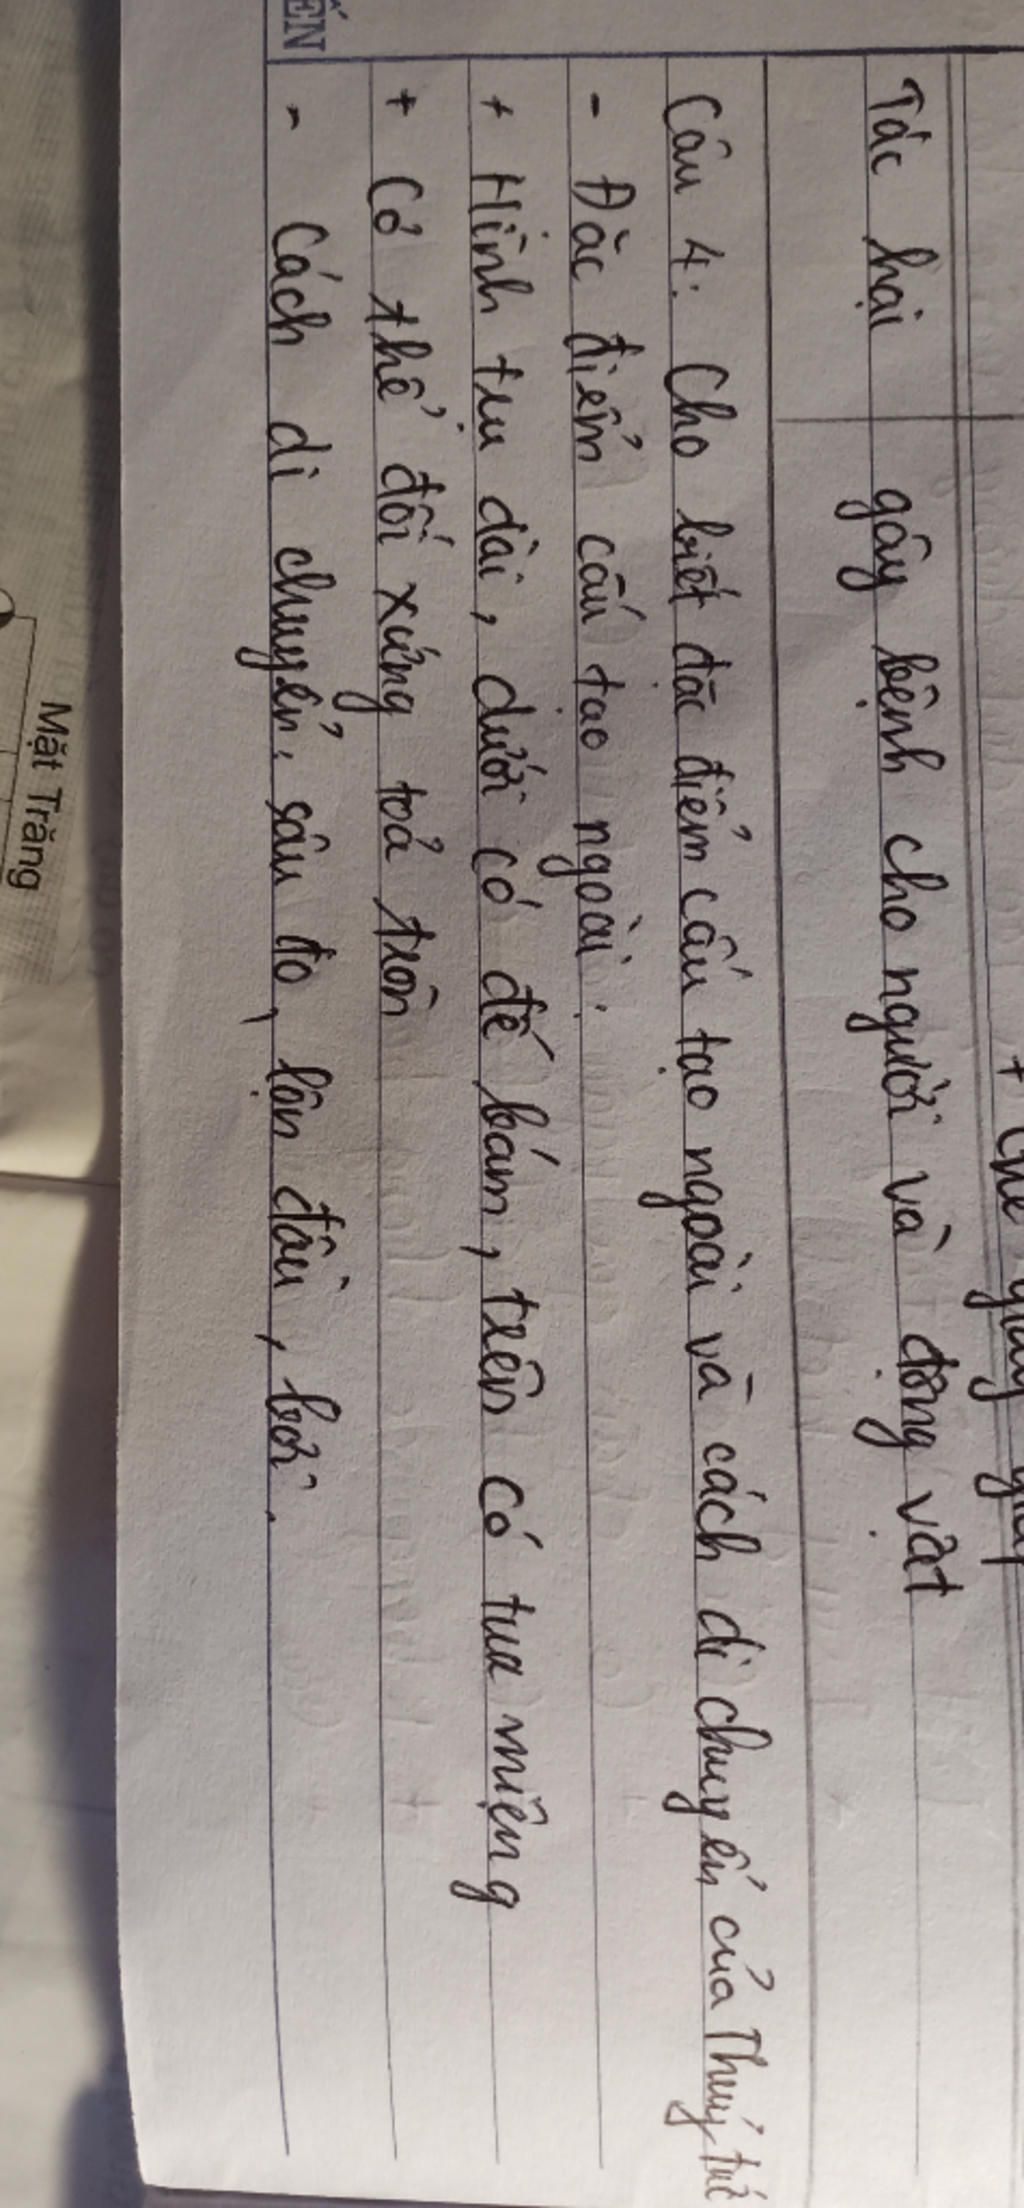 + Chế giấy giáp
Tác hại gây bệnh cho người và động vật
Câu 4: Cho biết đặc điểm cấu tạo ngoài và cách di chuyển của Thuỷ tức
- Đặc điểm cấu tạo ngoài:
+ Hình trụ dài, dưới có đế bám, trên có tua miệng
+ Cơ thể đối xứng toả tròn
- Cách di chuyển: sâu đo, lộn đầu, bơi.
ẾN
Mặt Trăng